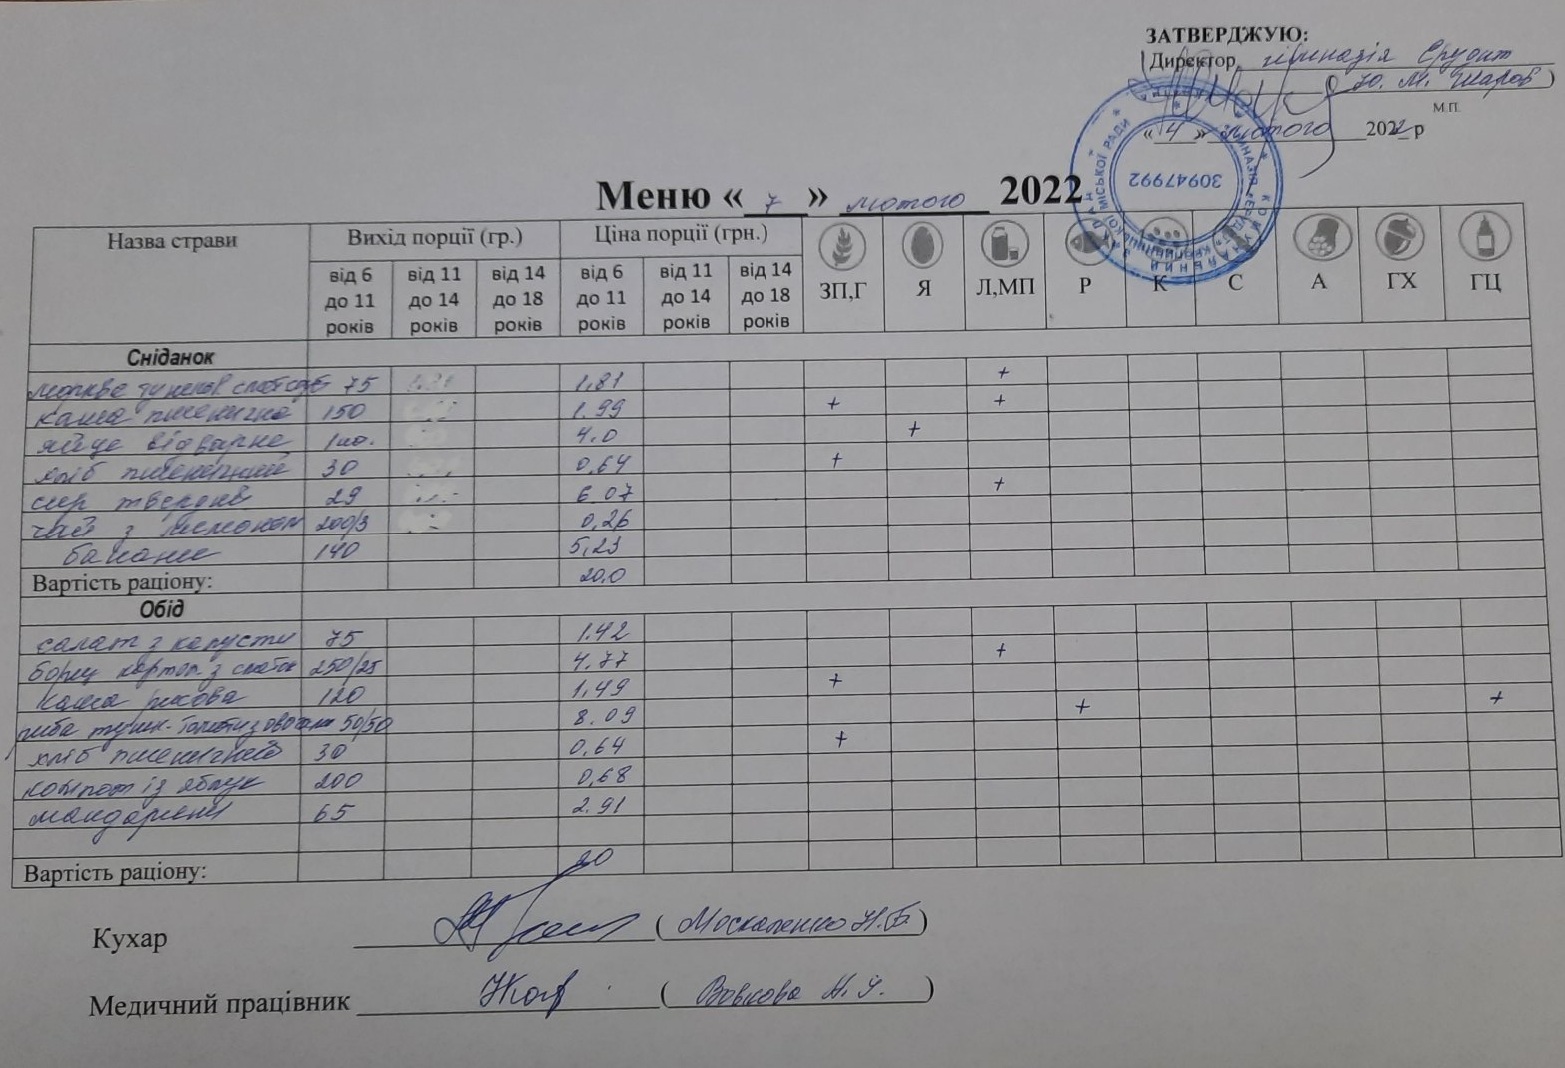 ЗАТВЕРДЖУЮ:
Директор гімназія Ерудит
Ю. М. Шаров )
М.П.
« 4 » лютого 2022 р
КОМУНАЛЬНИЙ ЗАКЛАД МІСЬКОЇ РАДИ 30947992
Меню « 7 » лютого 2022
Назва страви Вихід порції (гр.) Ціна порції (грн.)
від 6 до 11 років від 11 до 14 років від 14 до 18 років від 6 до 11 років від 11 до 14 років від 14 до 18 років ЗП,Г Я Л,МП Р К С А ГХ ГЦ
Сніданок
морква 75 1,81 +
каша пшенична 150 1.99 + +
яйце відварне 1шт. 4.0 +
хліб пшеничний 30 0,64 +
сир твердий 29 6.07 +
чай з лимоном 200/3 0,26
банани 140 5,23
Вартість раціону: 20,0
Обід
салат з капусти 75 1.42
борщ картоп. з сметан 250/25 4.77 +
каша рисова 120 1,49 +
риба тушк. 50/50 8.09 + +
хліб пшеничний 30 0,64 +
компот із яблук 200 0,68
мандарини 65 2.91
Вартість раціону: 20
Кухар ( Москаленко Н.Б. )
Медичний працівник ( Вовкова )